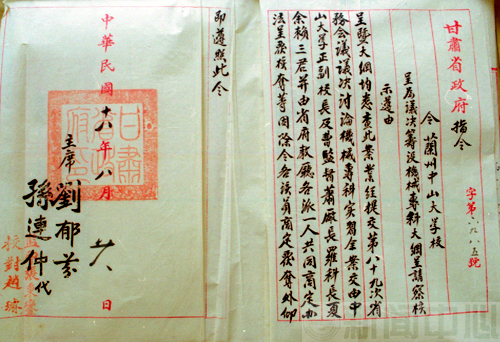 甘肅省政府指令
字第 九八五號
令蘭州中山大學校
呈爲議決籌設機械專科大綱呈請察核
示遵由
呈暨大綱均悉查此案業經提交第八十九次省
務會議議決討論機械專科實習全案交由中
山大學正副校長及曹監督蕭廠長羅科長夏
余賴三君并由省府教廳各派一人共同商定辦
法呈覆核奪等因除令各該員商定覆奪外仰
即遵照此令
中華民國十八年八月廿八日
主席劉郁芬
孫連仲代
校對趙
新闻中心